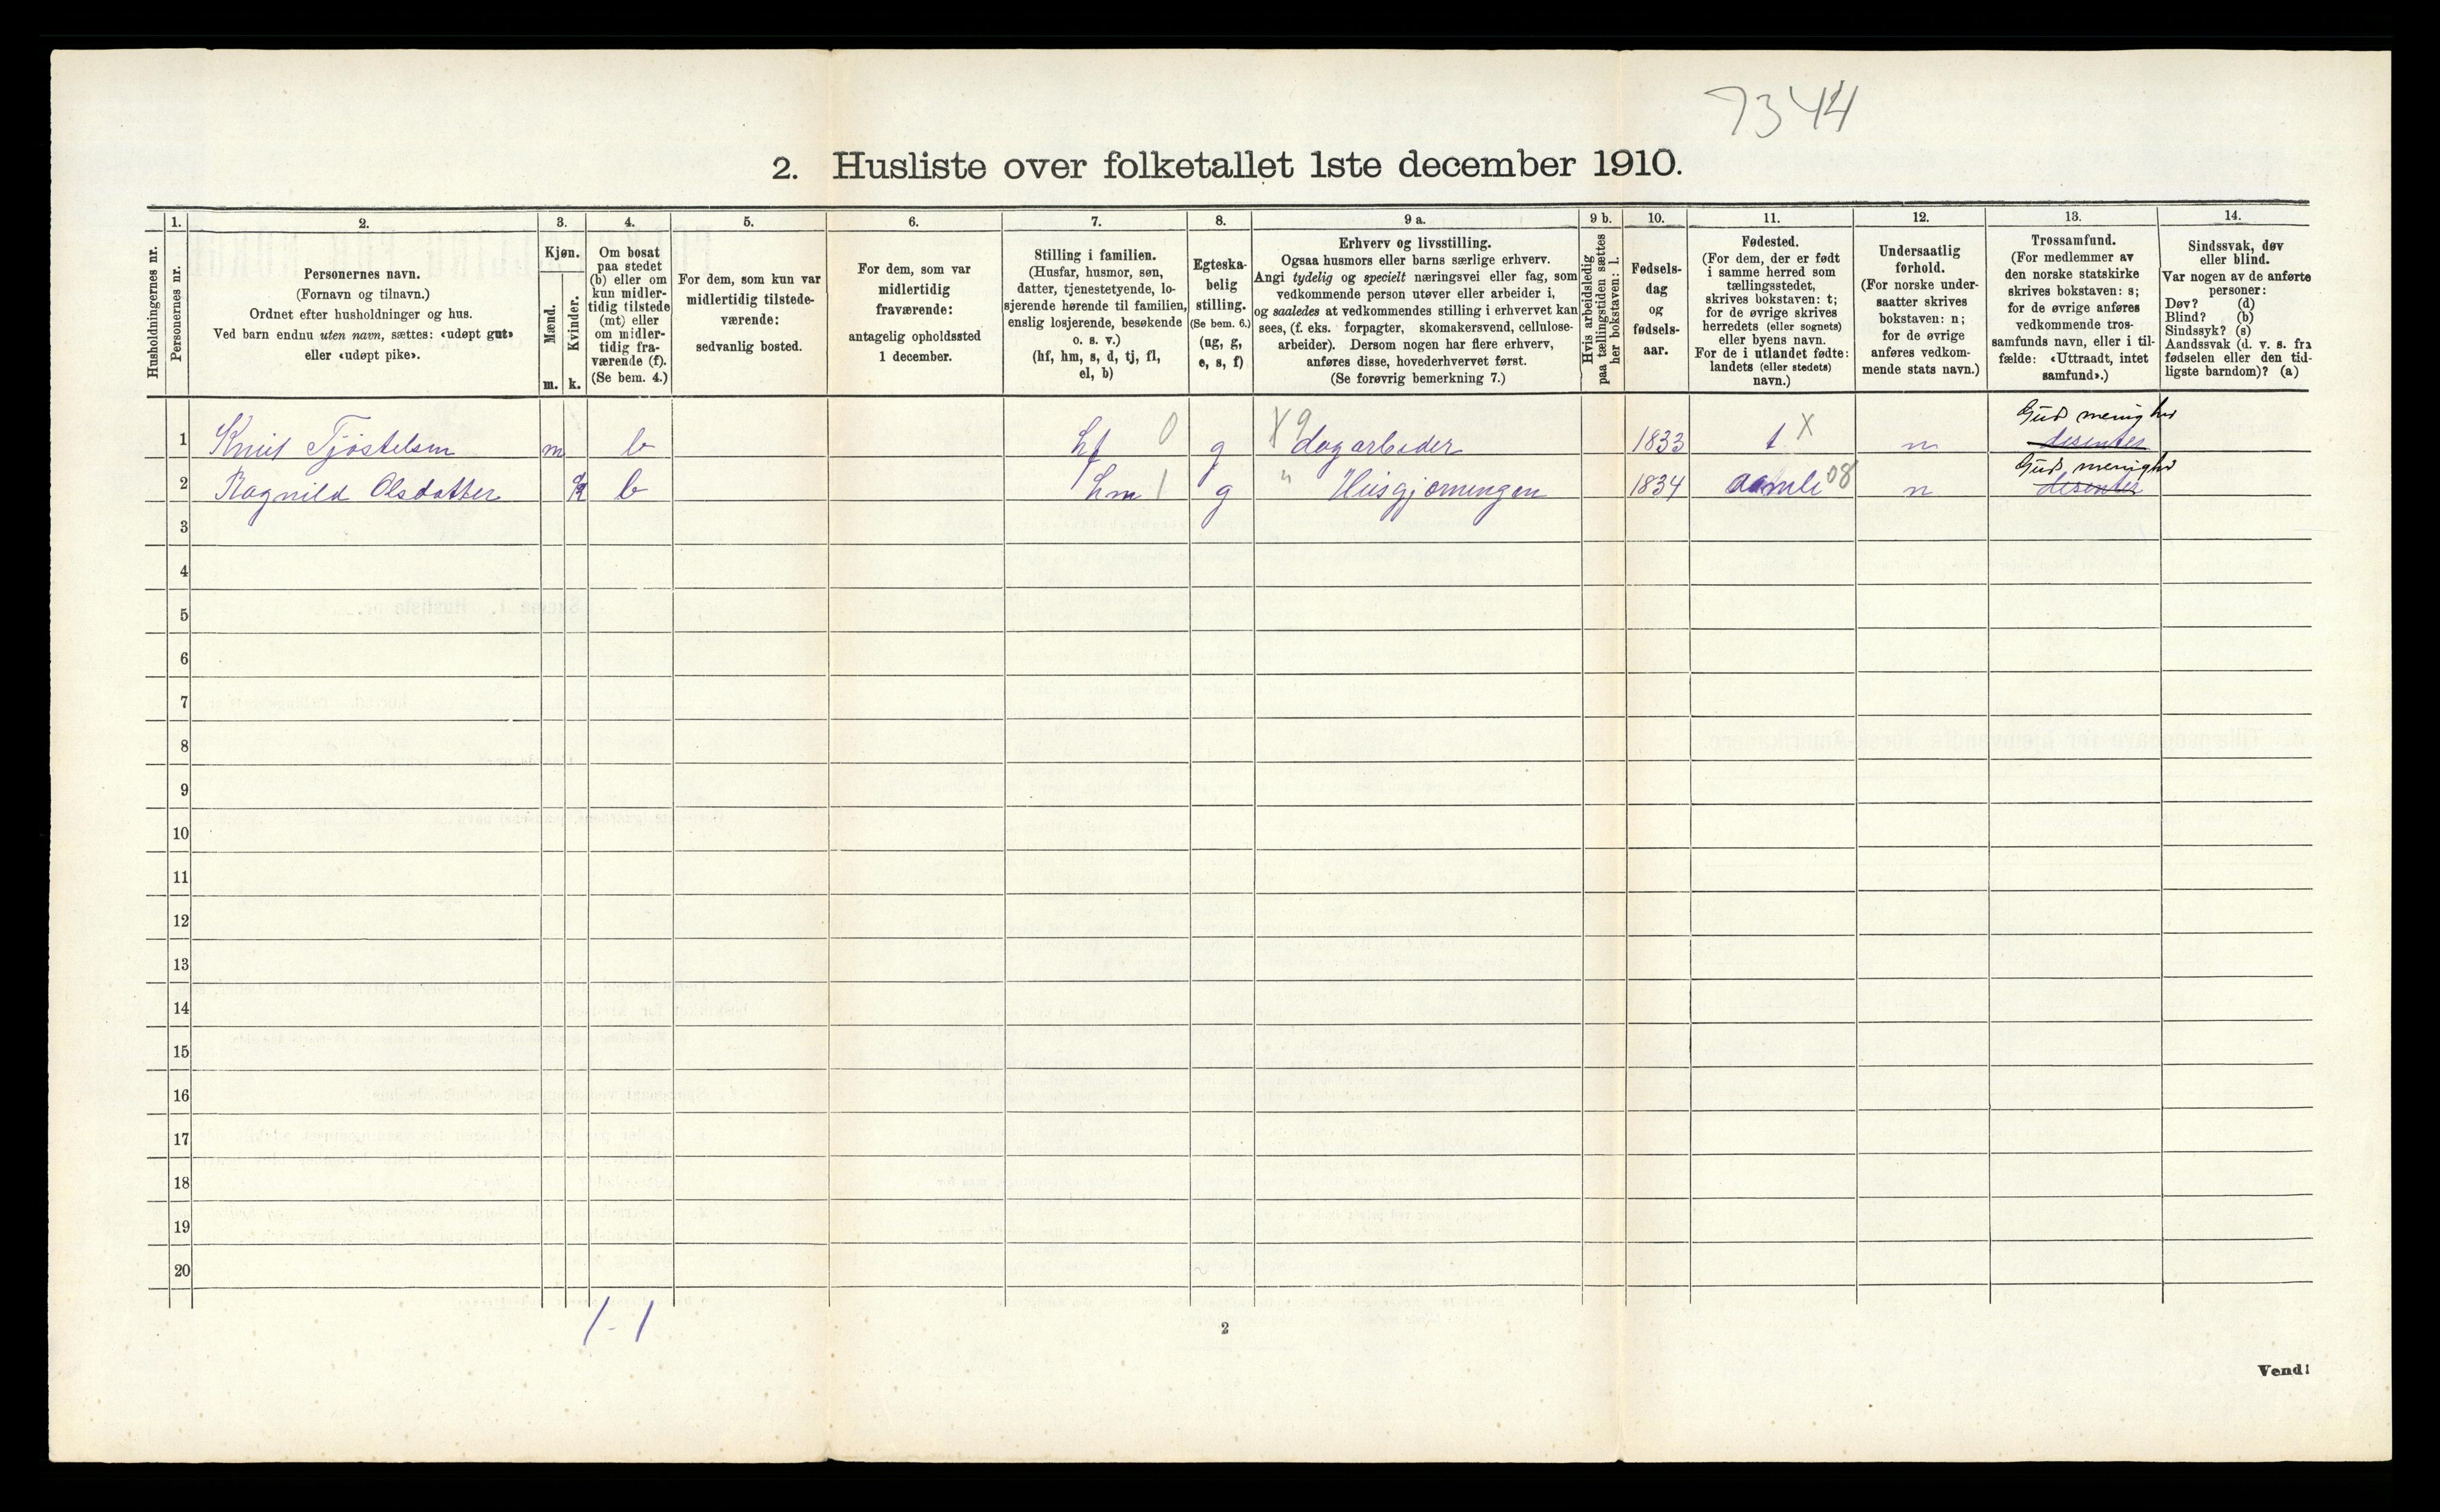 7344
2. Husliste over folketallet 1ste december 1910.
Husholdningernes nr.
1.
Personernes nr.
2.
Personernes navn.
(Fornavn og tilnavn.)
Ordnet efter husholdninger og hus.
Ved barn endnu uten navn, sættes: «udøpt gut»
eller «udøpt pike».
3.
Kjøn.
Mænd.
m.
Kvinder.
k.
4.
Om bosat
paa stedet
(b) eller om
kun midler-
tidig tilstede
(mt) eller
om midler-
tidig fra-
værende (f).
(Se bem. 4.)
5.
For dem, som kun var
midlertidig tilstede-
værende:
sedvanlig bosted.
6.
For dem, som var
midlertidig
fraværende:
antagelig opholdssted
1 december.
7.
Stilling i familien.
(Husfar, husmor, søn,
datter, tjenestetyende, lo-
sjerende hørende til familien,
enslig losjerende, besøkende
o. s. v.)
(hf, hm, s, d, tj, fl,
el, b)
8.
Egteska-
belig
stilling.
(Se bem. 6.)
(ug, g,
e, s, f)
9 a.
Erhverv og livsstilling.
Ogsaa husmors eller barns særlige erhverv.
Angi tydelig og specielt næringsvei eller fag, som
vedkommende person utøver eller arbeider i,
og saaledes at vedkommendes stilling i erhvervet kan
sees, (f. eks. forpagter, skomakersvend, cellulose-
arbeider). Dersom nogen har flere erhverv,
anføres disse, hovederhvervet først.
(Se forøvrig bemerkning 7.)
9 b.
Hvis arbeidsledig
paa tællingstiden sættes
her bokstaven: l.
10.
Fødsels-
dag
og
fødsels-
aar.
11.
Fødested.
(For dem, der er født
i samme herred som
tællingsstedet,
skrives bokstaven: t;
for de øvrige skrives
herredets (eller sognets)
eller byens navn.
For de i utlandet fødte:
landets (eller stedets)
navn.)
12.
Undersaatlig
forhold.
(For norske under-
saatter skrives
bokstaven: n;
for de øvrige
anføres vedkom-
mende stats navn.)
13.
Trossamfund.
(For medlemmer av
den norske statskirke
skrives bokstaven: s;
for de øvrige anføres
vedkommende tros-
samfunds navn, eller i til-
fælde: «Uttraadt, intet
samfund».)
14.
Sindssvak, døv
eller blind.
Var nogen av de anførte
personer:
Døv? (d)
Blind? (b)
Sindssyk? (s)
Aandssvak (d. v. s. fra
fødselen eller den tid-
ligste barndom)? (a)
1 Knut Tjøstelsen m b hf 0 g X 9 dagarbeider 1833 t X n Guds menighed desenter
2 Ragnild Olsdatter k b hm 1 g " Husgjerningen 1834 Aamli 08 n Guds menighed desenter
3
4
5
6
7
8
9
10
11
12
13
14
15
16
17
18
19
20
1-1
2
Vend!